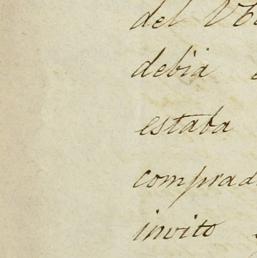 del
debia
estaba
comprad
invito